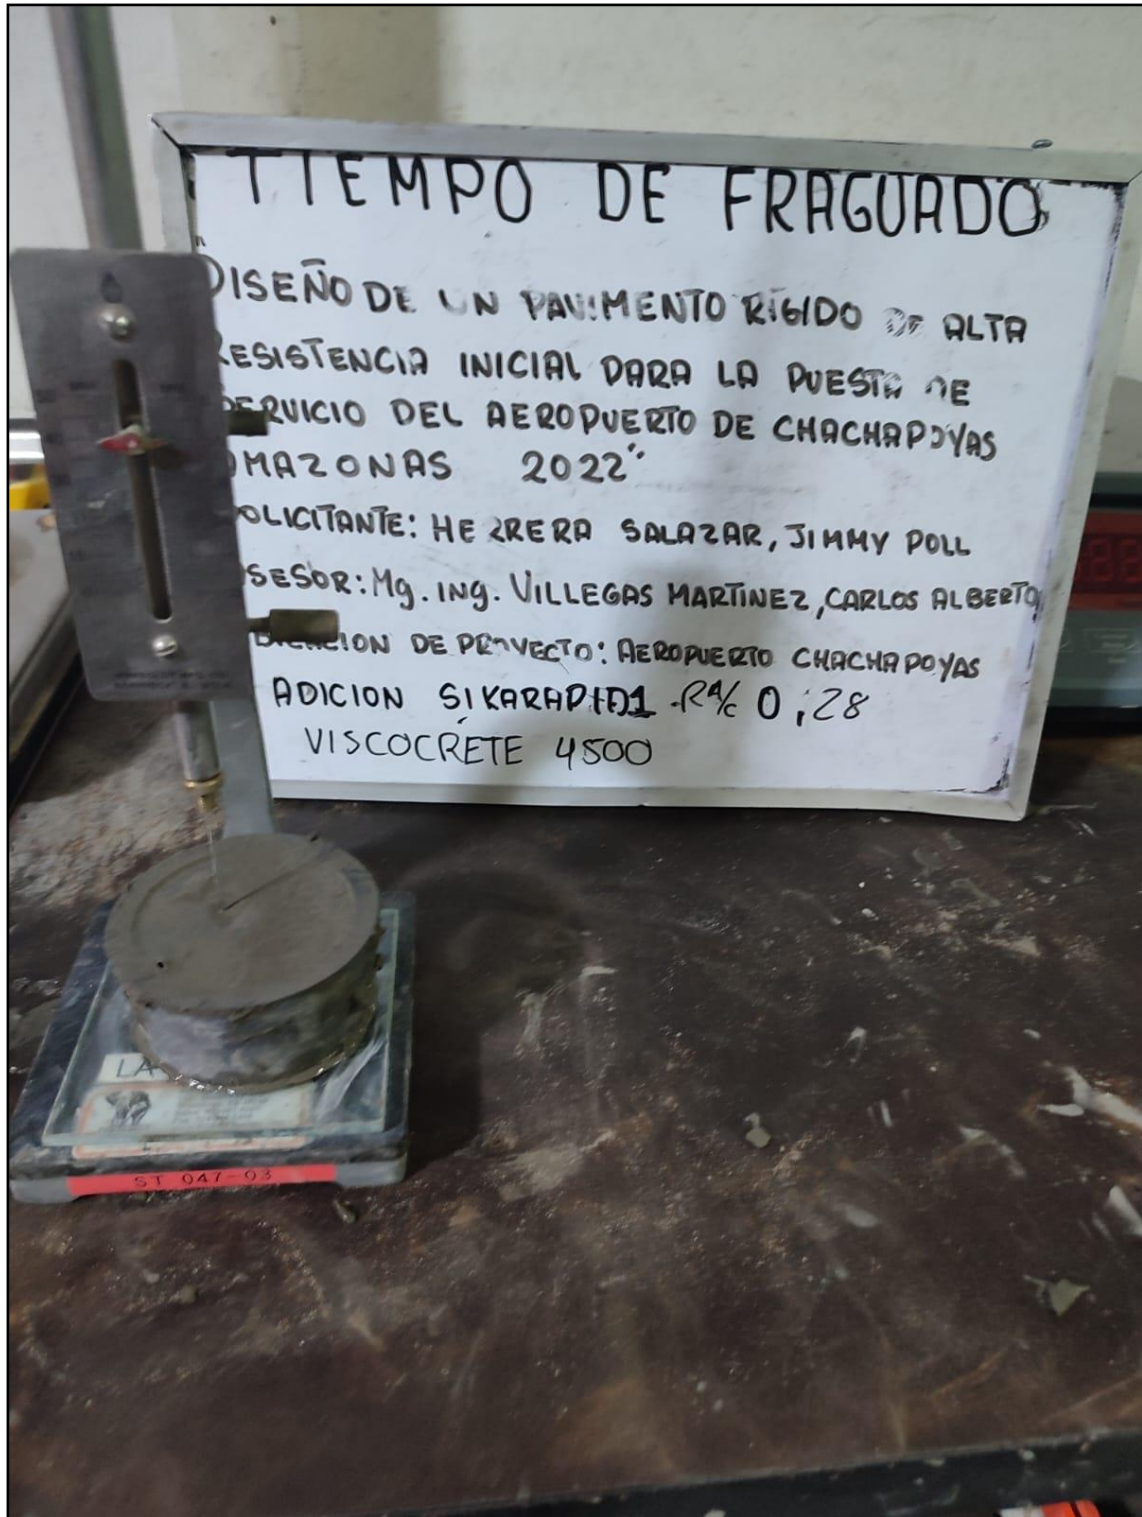 TIEMPO DE FRAGUADO
"DISEÑO DE UN PAVIMENTO RÍGIDO DE ALTA
RESISTENCIA INICIAL PARA LA PUESTA DE
SERVICIO DEL AEROPUERTO DE CHACHAPOYAS
AMAZONAS 2022"
SOLICITANTE: HERRERA SALAZAR, JIMMY POLL
ASESOR: Mg. ING. VILLEGAS MARTÍNEZ, CARLOS ALBERTO
DE PROYECTO: AEROPUERTO CHACHAPOYAS
ADICION SIKARAPID1 -R A/C 0,28
VISCOCRETE 4500
LA
ST 047-03